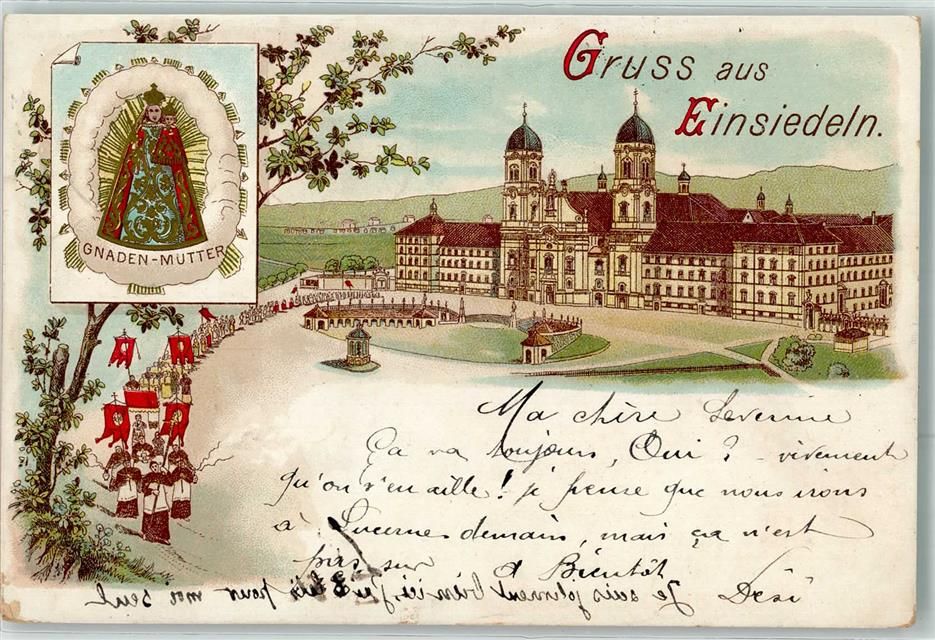 Gruss aus
Einsiedeln.
GNADEN-MUTTER
Ma chère Severine
Ça va toujours, Oui? - vivement
qu'on s'en aille! je pense que nous irons
à Lucerne demain, mais ça n'est
pas sur à Bientôt
Dési
Je suis joliment bien ici, j'ai 3 lits pour moi seul